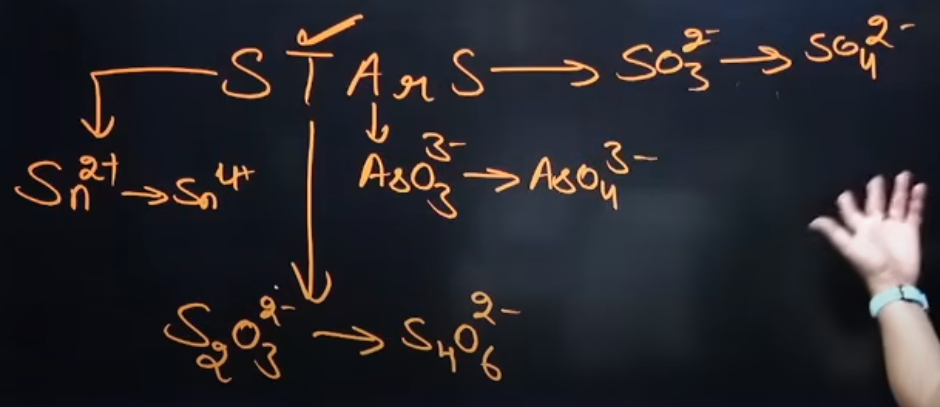 S T Ar S → SO₃²⁻ → SO₄²⁻
Sn²⁺ → Sn⁴⁺
AsO₃³⁻ → AsO₄³⁻
S₂O₃²⁻ → S₄O₆²⁻